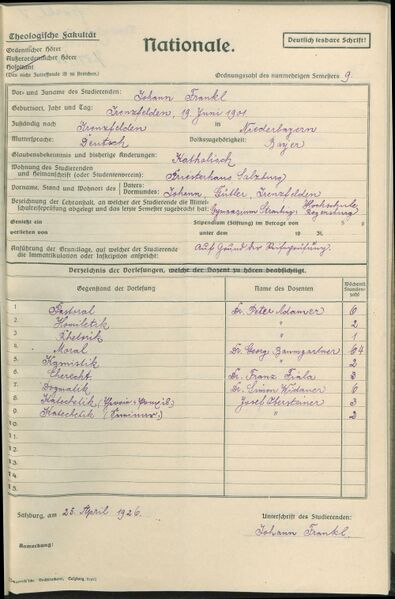 Theologische Fakultät
Ordentlicher Hörer
Außerordentlicher Hörer
Hospitant
(Das nicht Zutreffende ist zu streichen.)
Deutlich lesbare Schrift!
Nationale.
Ordnungszahl des nunmehrigen Semesters 9.
Vor- und Zuname des Studierenden: Johann Frankl
Geburtsort, Jahr und Tag: Irenzfelden, 19. Juni 1901
Zuständig nach Irenzfelden in Niederbayern
Muttersprache: Deutsch Volkszugehörigkeit: Bayer
Glaubensbekenntnis und bisherige Änderungen: Katholisch
Wohnung des Studierenden
und Heimanschrift (oder Studentenverein): Priesterhaus Salzburg
Vorname, Stand und Wohnort des Vaters: Vormundes: Johann, Gütler, Irenzfelden
Bezeichnung der Lehranstalt, an welcher die Mittel-
schulreifeprüfung abgelegt und das letzte Semester zugebracht hat: Gymnasium Straubing, Hochschule Regensburg
Genießt ein Stipendium (Stiftung) im Betrage von S
verliehen von unter dem 19 Zl.
Anführung der Grundlage, auf welcher der Studierende
die Immatrikulation oder Inskription anspricht: Auf Grund der Reifeprüfung.
Verzeichnis der Vorlesungen, welche der Dozent zu hören beabsichtigt.
Gegenstand der Vorlesung Name des Dozenten Wöchentl. Stunden-zahl
1. Pastoral Dr. Peter Adamer 6
2. Homiletik " 2
3. Rhetorik " 1
4. Moral Dr. Georg Baumgartner 64
5. 2
6. Eherecht Dr. Franz Fiala 3
7. Dogmatik Dr. Simon Widauer 6
8. Katechetik Josef Obersteiner 3
9. Katechetik (Seminar) " 2
10.
11.
12.
13.
14.
15.
Salzburg, am 25. April 1926. Unterschrift des Studierenden:
Johann Frankl.
Anmerkung: